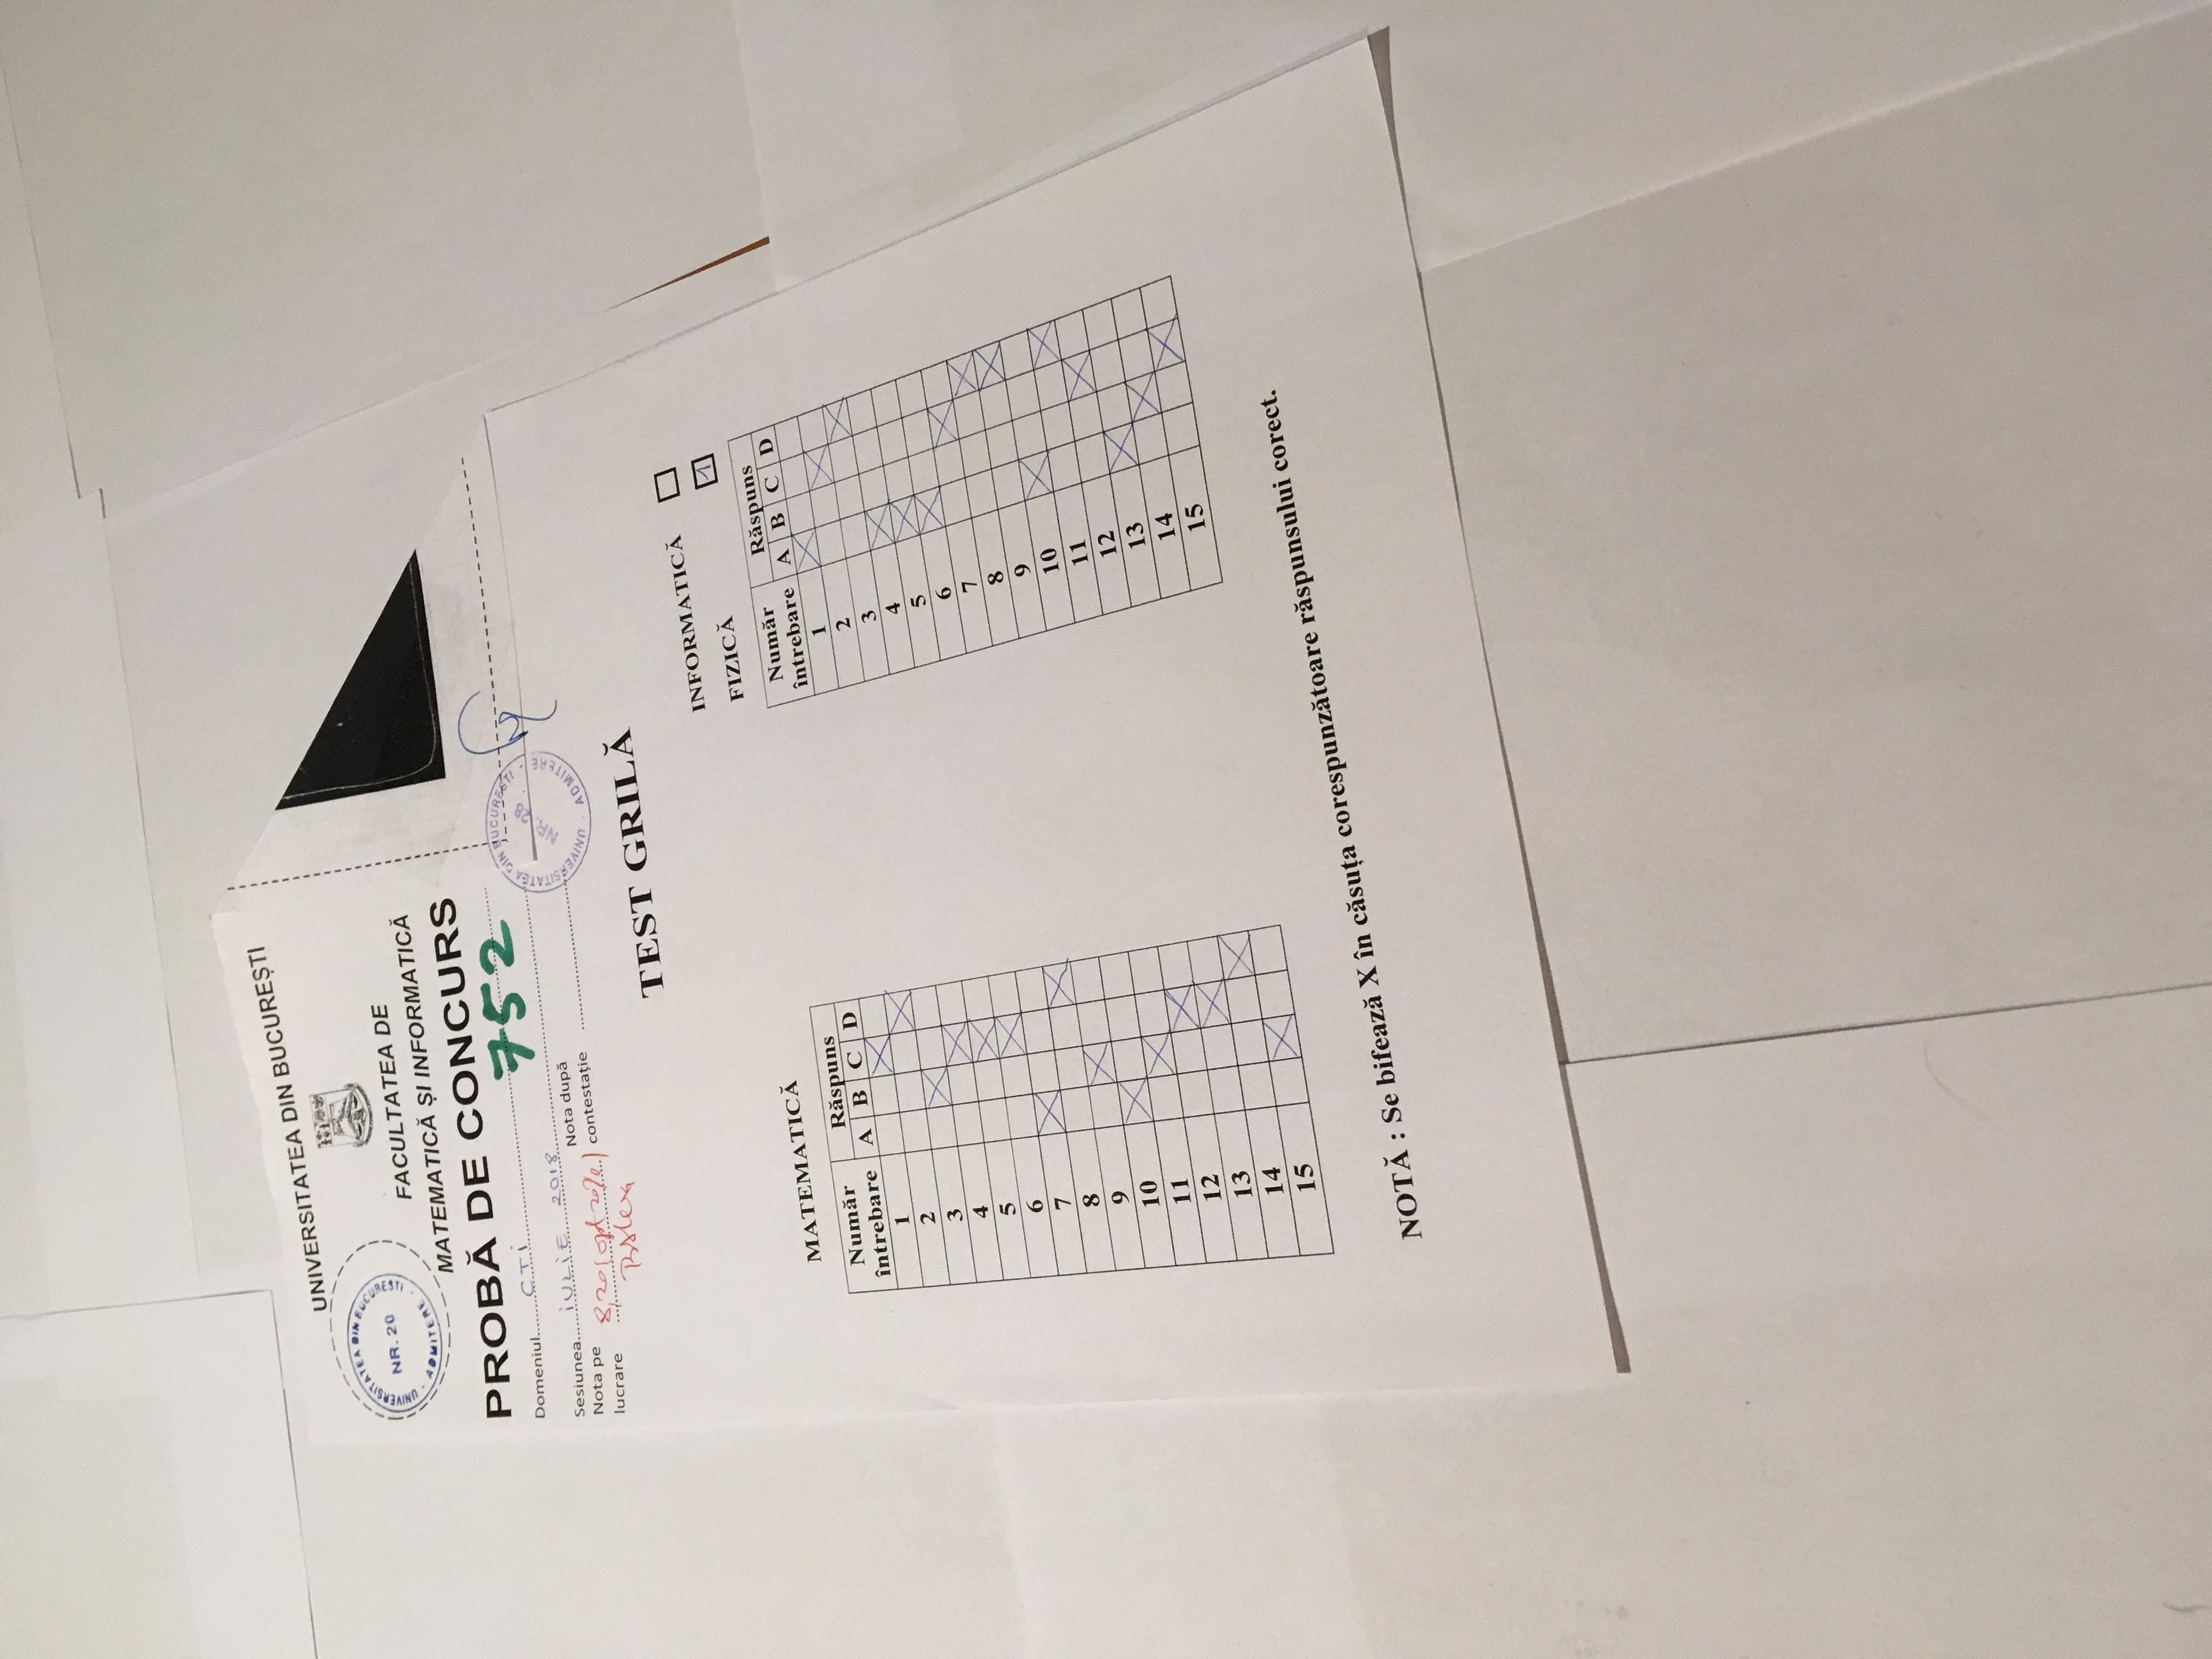 UNIVERSITATEA DIN BUCUREȘTI
UNIVERSITATEA DIN BUCUREȘTI
NR. 20
ADMITERE
FACULTATEA DE
MATEMATICĂ ȘI INFORMATICĂ
PROBĂ DE CONCURS
752
Domeniul CTI
Sesiunea IULIE 2018
Nota pe lucrare 8,20 (opt 20%)
Nota după contestație
UNIVERSITATEA DIN BUCUREȘTI
NR. 28
ADMITERE
TEST GRILĂ
INFORMATICĂ
FIZICĂ 1
MATEMATICĂ
Număr întrebare Răspuns
A B C D
1 X
2 X
3 X
4 X
5 X
6 X
7 X
8 X
9 X
10 X
11 X
12 X
13 X
14 X
15 X
Număr întrebare Răspuns
A B C D
1 X
2 X
3 X
4 X
5 X
6 X
7 X
8 X
9 X
10 X
11 X
12 X
13 X
14 X
15 X
NOTĂ : Se bifează X în căsuța corespunzătoare răspunsului corect.